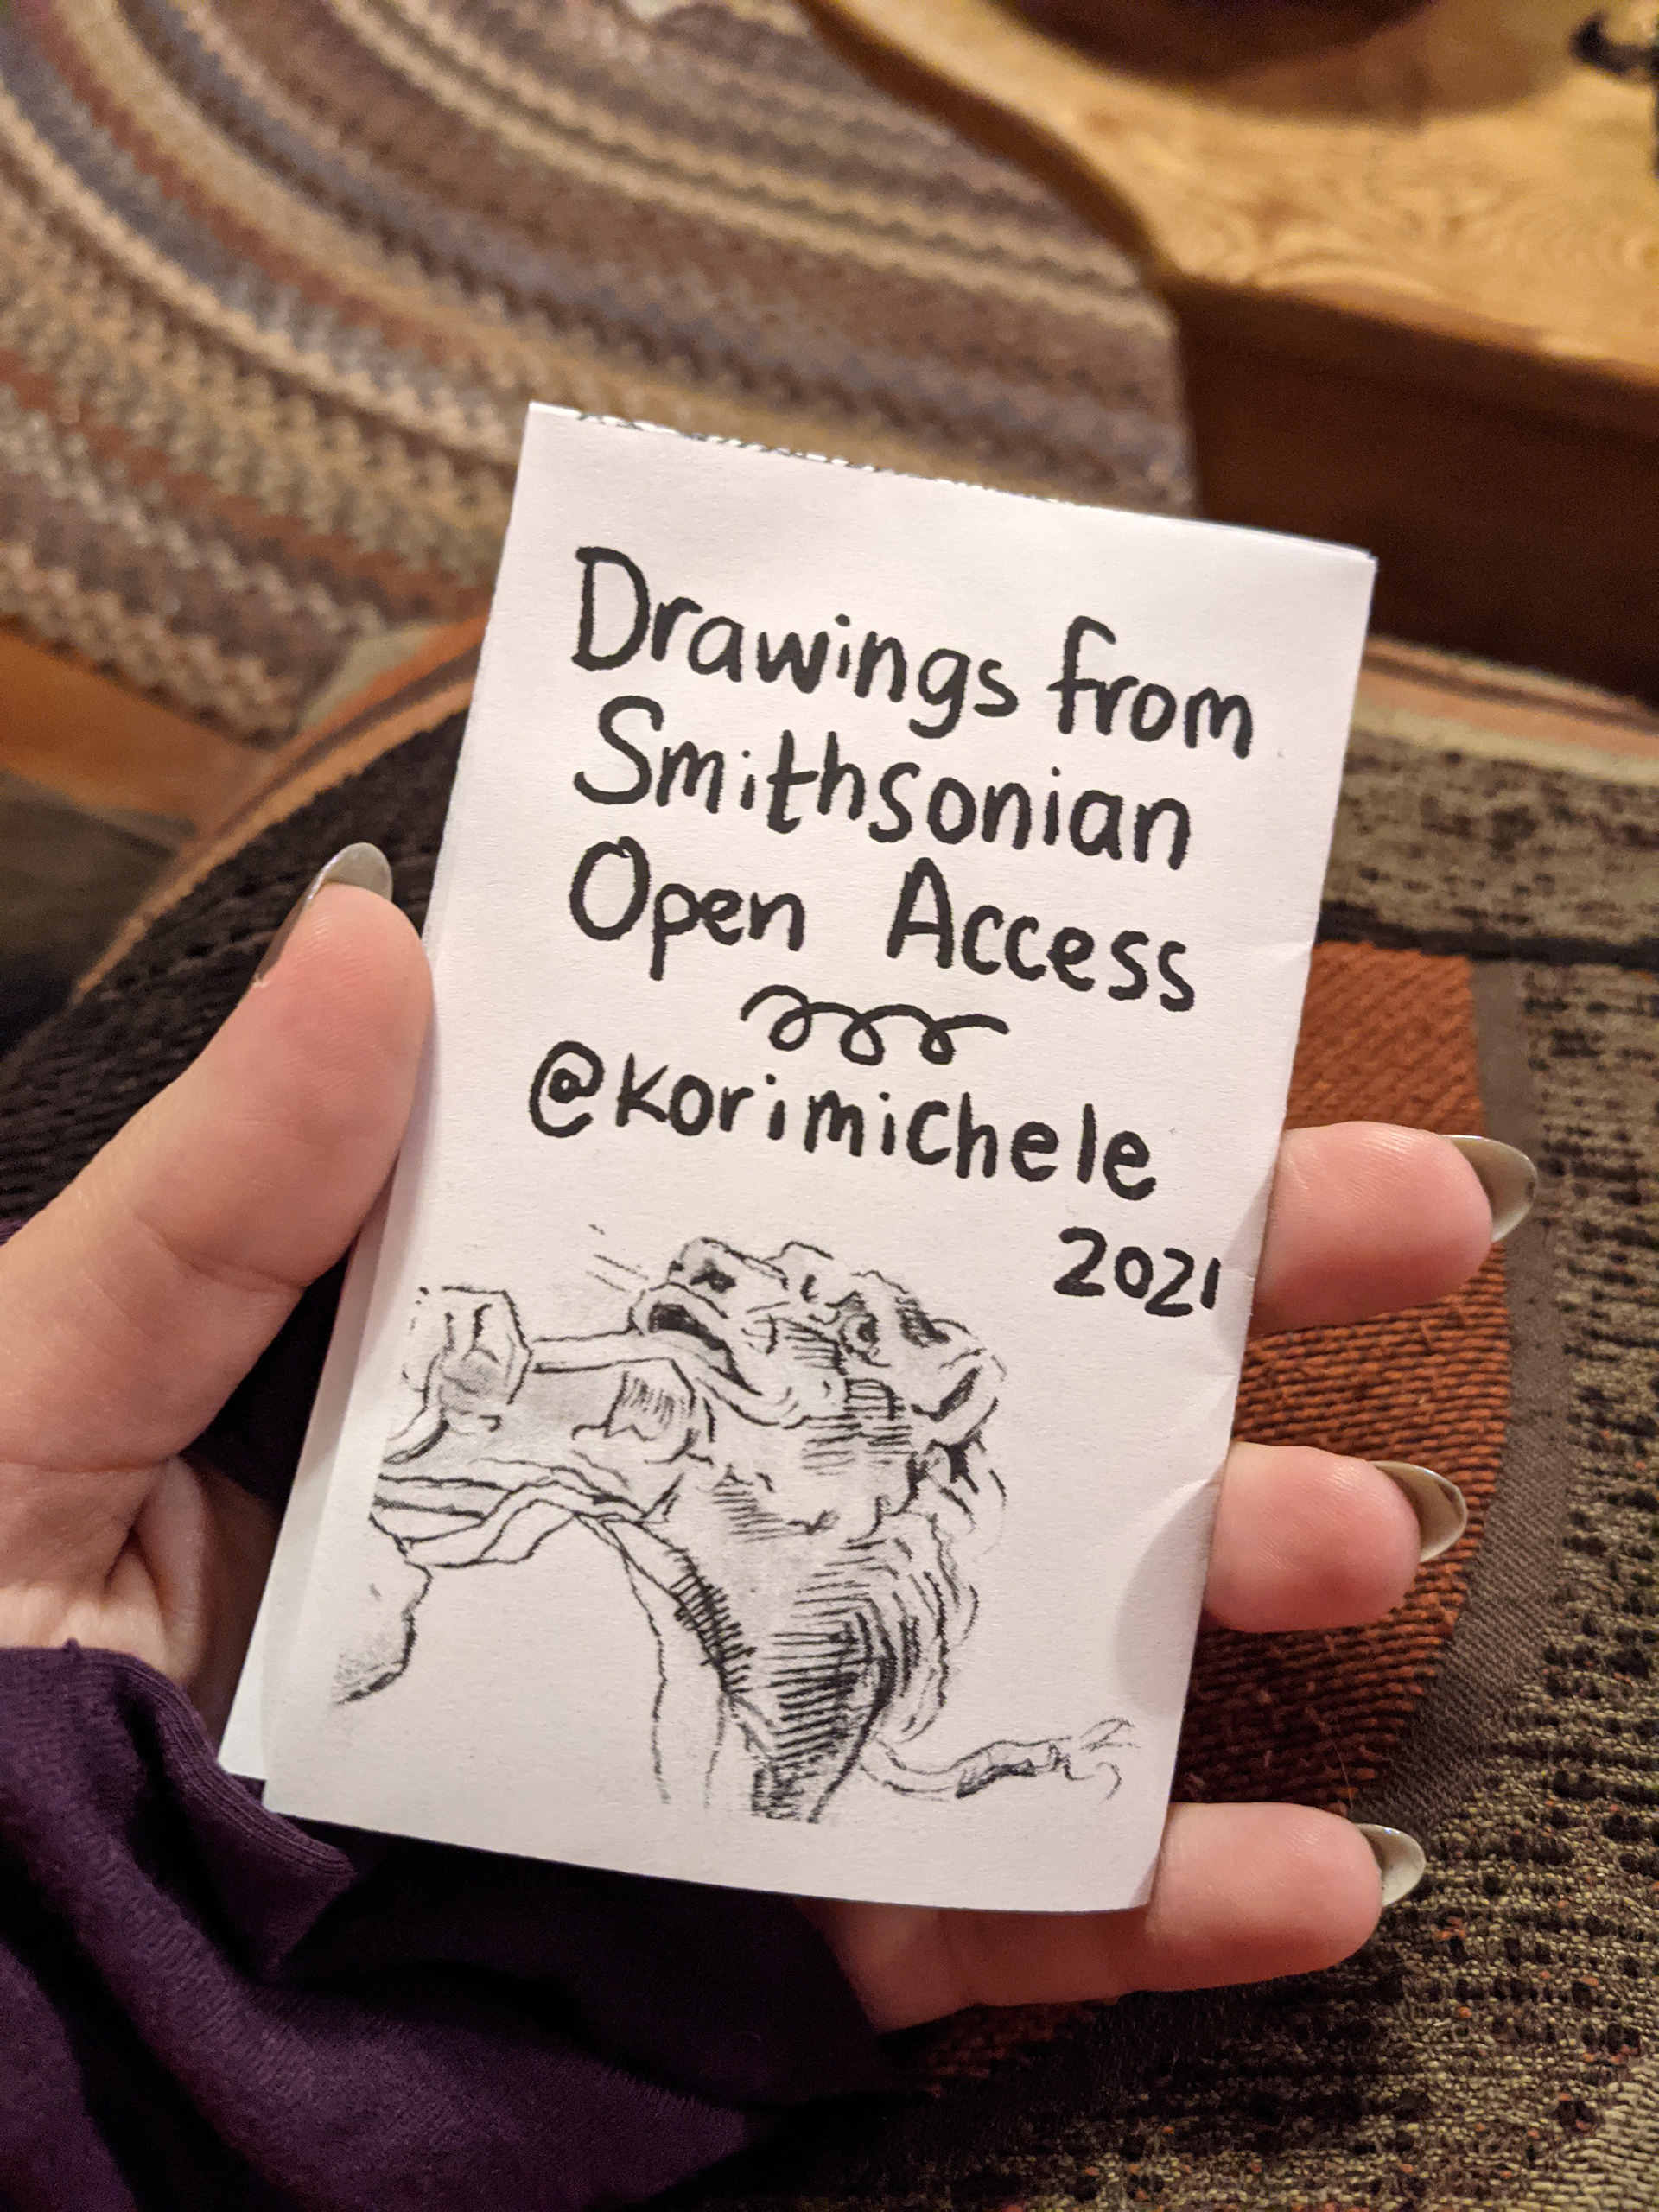 Drawings from
Smithsonian
Open Access
@korimichele
2021